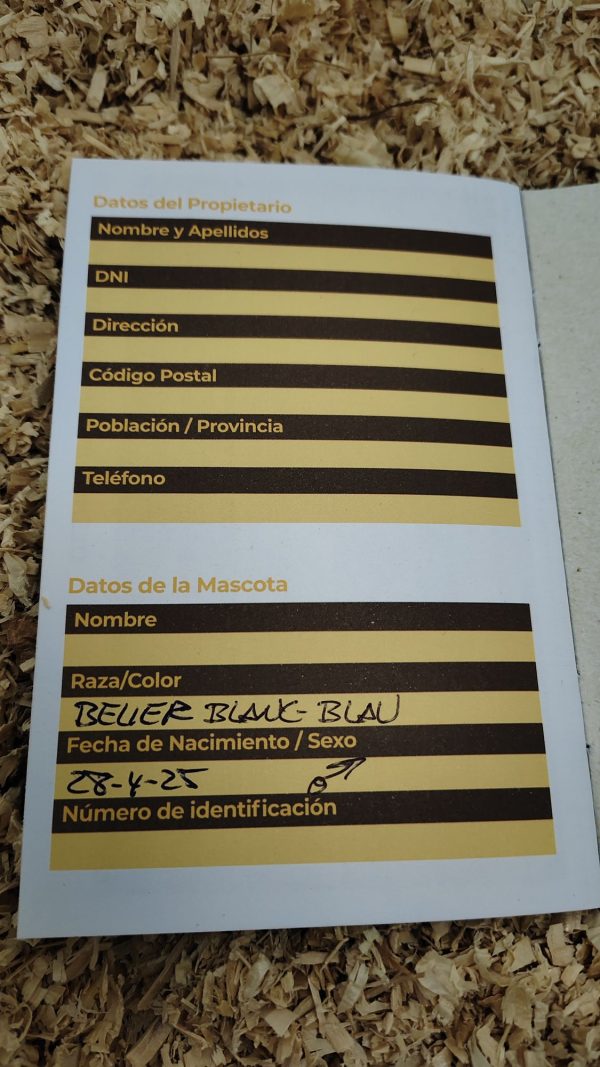 Datos del Propietario
Nombre y Apellidos
DNI
Dirección
Código Postal
Población / Provincia
Teléfono
Datos de la Mascota
Nombre
Raza/Color
BELIER BLANC-BLAU
Fecha de Nacimiento / Sexo
28-4-25 ♂
Número de identificación